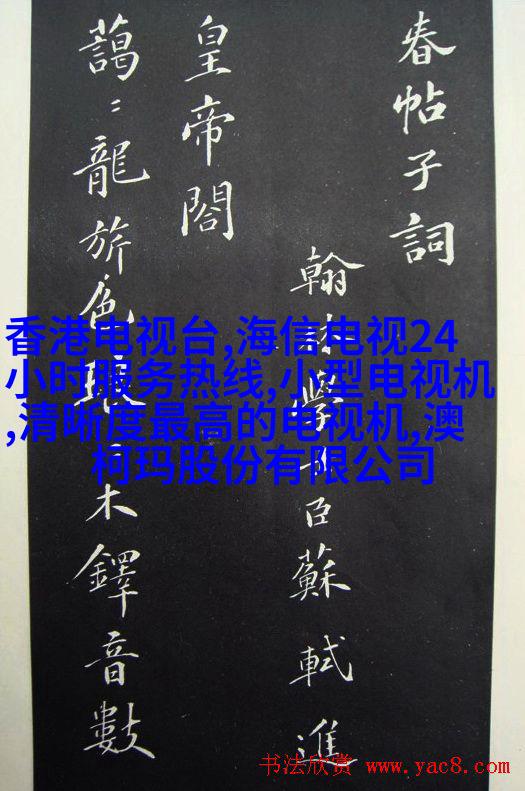 春帖子詞
翰林學士臣蘇軾進
皇帝閣
藹〻龍旂色琅〻木鐸音數
香港电视台,海信电视24
小时服务热线,小型电视机
,清晰度最高的电视机,澳
柯玛股份有限公司
书法欣赏 www.yac8.com